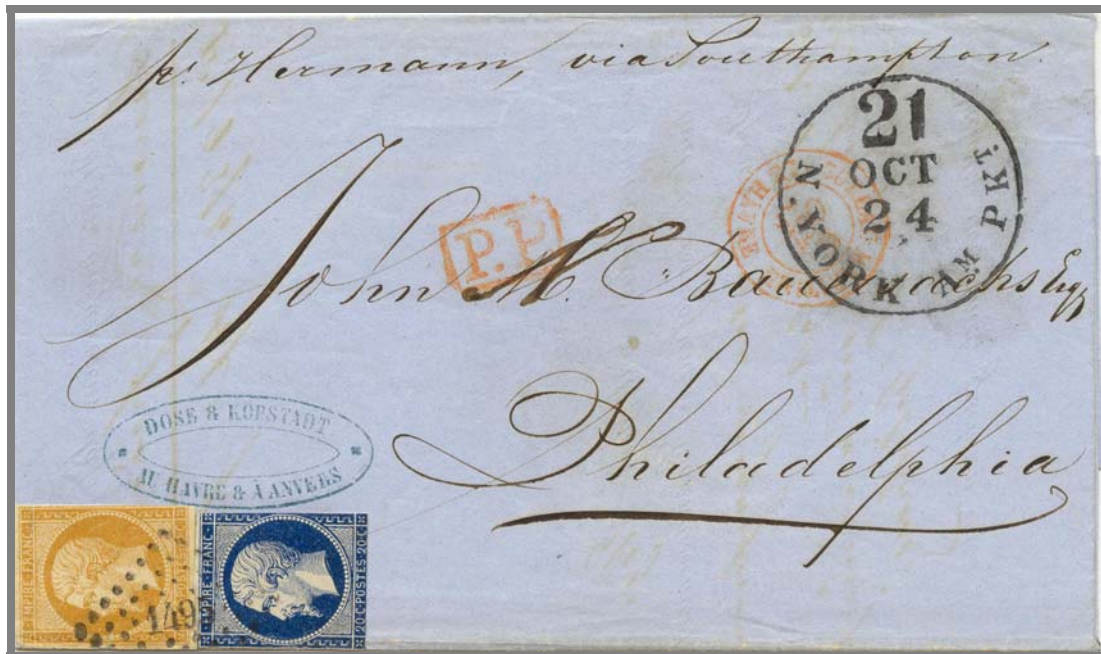 pr Hermann, via Southampton.
21
OCT
24
N. YORK AM PKT.
P.P.
John M. Esq
Philadelphia
DOSE & KOFSTADT
AU HAVRE & À ANVERS
EMPIRE FRANC
149
EMPIRE FRANC
20 C POSTES 20 C